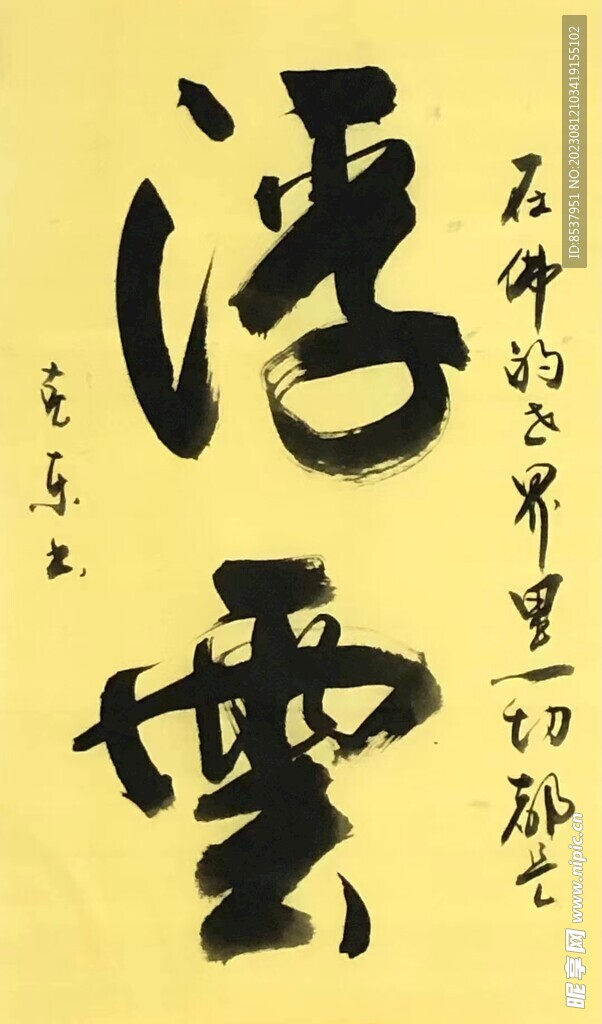 在佛的世界里一切都是
浮雲
克东书
ID:8537951 NO:20230812103419155102
昵享网 www.nipic.cn